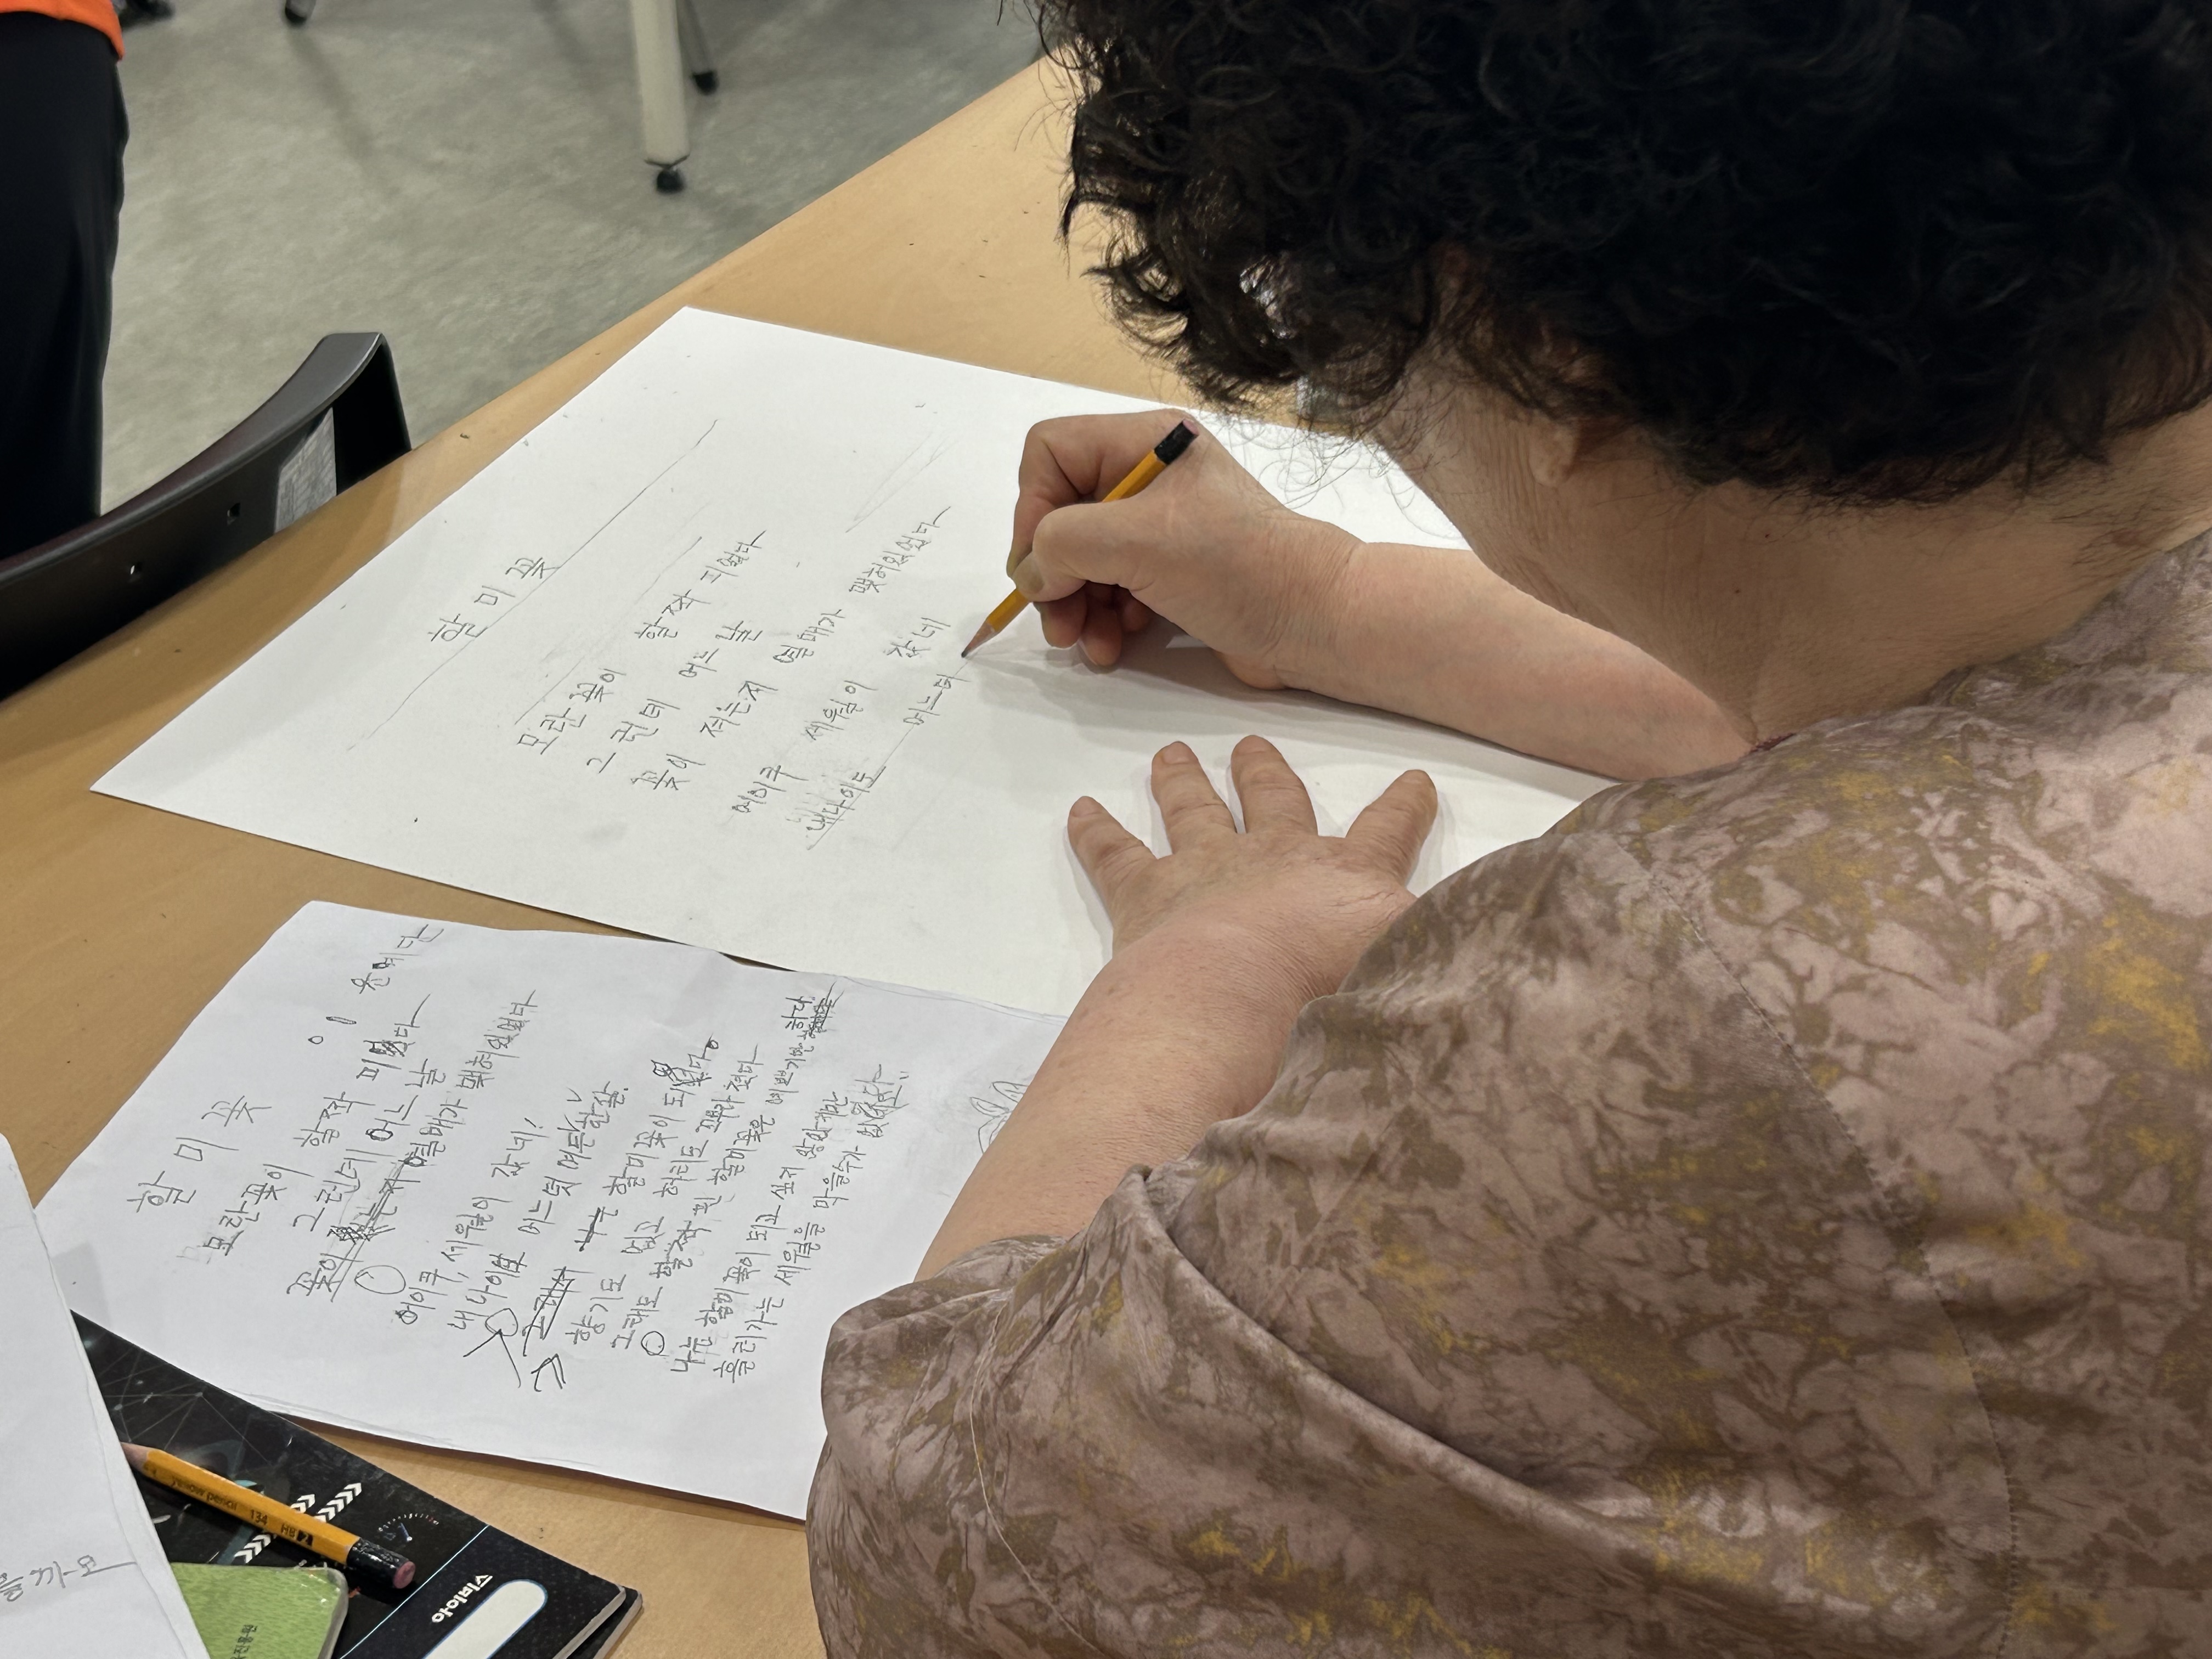 할미꽃
모란꽃이 활짝 피었다
그런데 어느 날
꽃이 져는지 열매가 맺혀있었다
어이쿠 세월이 갔네
내나이도 어느더
할미꽃
모란꽃이 활짝 피었다
그런데 어느 날
꽃이 열매가 맺혀있었다
어이쿠, 세월이 갔네!
내 나이 어느덧 여든 살
할미꽃이 되었다.
향기도 없고 허리도 꼬부라졌다
그래도 활짝 핀 할미꽃은 예쁘기만 하다
나는 할미꽃이 되고 싶지 않았지만
흘러가는 세월을 막을수가 없었다
yellow pencil 134 HB